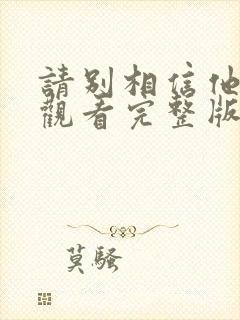 請別相信他
觀看完整版
莫騷